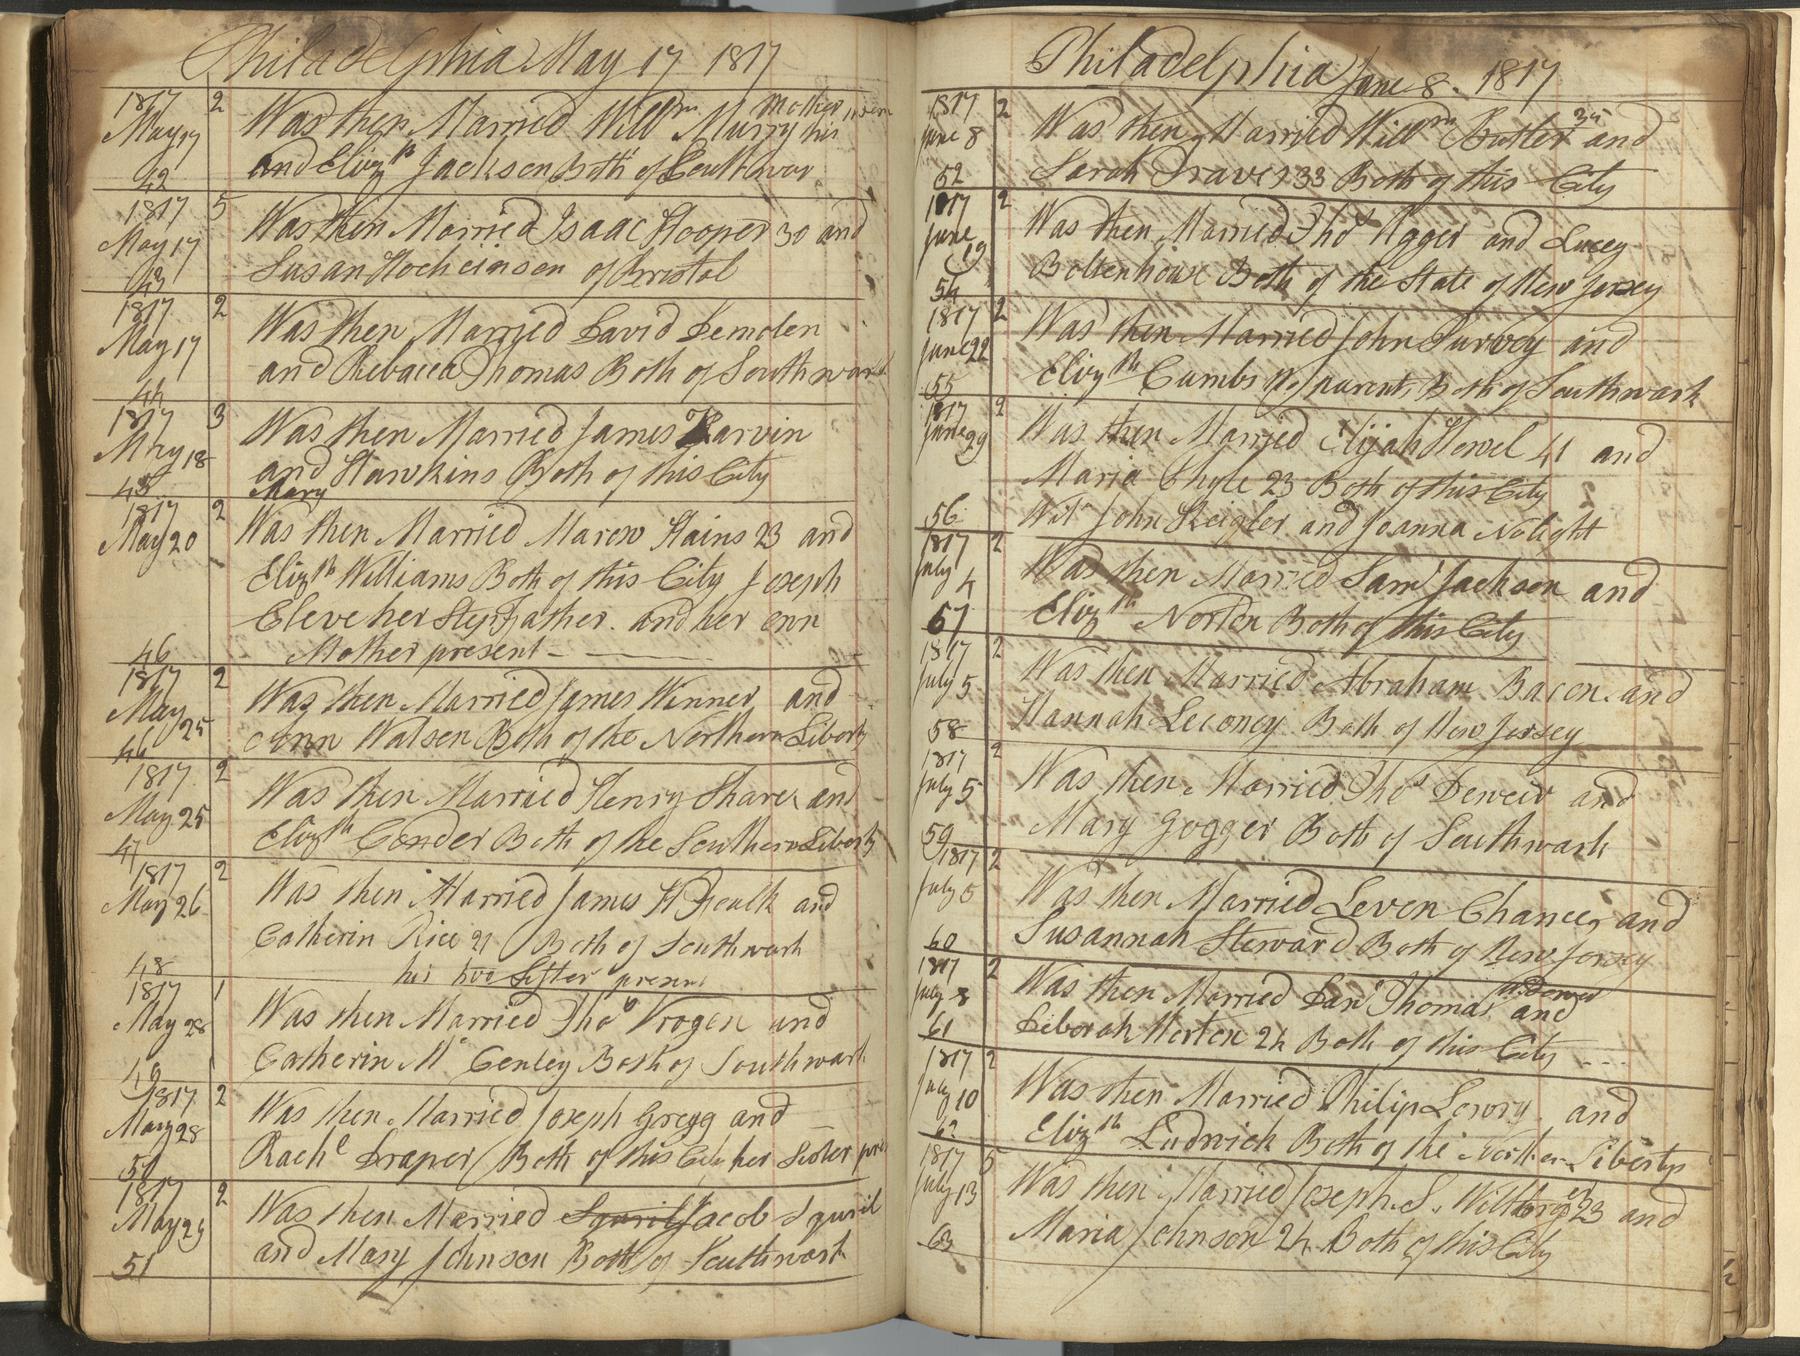 Philadelphia May 17 1817
1817 2 Was then Married Willm Murry his Mother
May 17 and Elizth Jackson Both of Southwar
42
1817 5 Was then Married Isaac Hooper 30 and
May 17 Susan Hochcinson of Bristol
43
1817 2 Was then Married David Demolen
May 17 and Rebacca Thomas Both of Southward
44
1817 3 Was then Married James Karvin
May 18 and Hawkins Both of this City
45 Mary
1817 2 Was then Married Marcw Hains 23 and
May 20 Elizth Williams Both of this City Joseph
Cleve her Step father. and her own
46 Mother present
1817 2 Was then Married James Winner and
May 25 Ann Watson Both of the Northern Liberty
46
1817 2 Was then Married Henry Sharer and
May 25 Elizth Conder Both of the Southern Liberty
47
1817 2 Was then Married James H Foulk and
May 26 Catherin Rice 21 Both of Southwark
48 his two Sister present
1817 1 Was then Married Thos Vrogen and
May 28 Catherin Mc Genley Both of Southwark
49
1817 2 Was then Married Joseph Gregg and
May 28 Rachl Draper Both of this City her Sister pre
50
1817 2 Was then Married Squril Jacob Squril
May 29 and Mary Johnson Both of Southwark
51
Philadelphia June 8. 1817
1817 2 Was then Married Willm Butler 35 and
June 8 Sarah Traver 33 Both of this City
52
1817 2 Was then Married Thos Agger and Lucey
June 19 Boltenhouse Both of the State of New Jersey
54
1817 2 Was then Married John Survey and
June 22 Elizth Cumbs No parents Both of Southwark
55
1817 2 Was then Married Elijah Howel 41 and
June 29 Maria Chyle 23 Both of this City
56 Wit John Keigler and Joanna Nolight
1817 2 Was then Married Saml Jackson and
July 4 Elizth Norten Both of this City
57
1817 2 Was then Married Abraham Bacon and
July 5 Hannah Leconey Both of New Jersey
58
1817 2 Was then Married Thos Deweir and
July 5 Mary Gogger Both of Southwark
59
1817 2 Was then Married Leven Chancey and
July 5 Susannah Steward Both of New Jersey
60
1817 2 Was then Married Danl Thomas widower and
July 8 Deborah Horten 24 Both of this City
61
1817 2 Was then Married Philip Lowry and
July 10 Elizth Ludwick Both of the Northern Libertys
62
1817 5 Was then Married Joseph S. Wiltberger 23 and
July 13 Maria Johnson 24 Both of this City
63